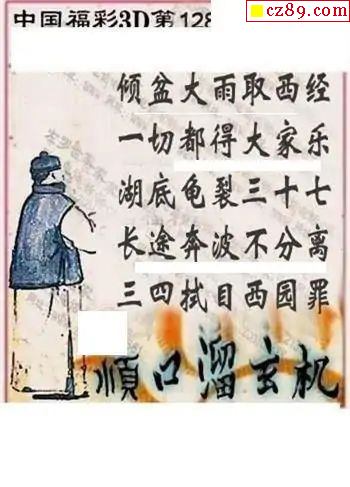 cz89.com
中国福彩3D第128
倾盆大雨取西经
一切都得大家乐
湖底龟裂三十七
长途奔波不分离
三四拭目西园罪
顺口溜玄机